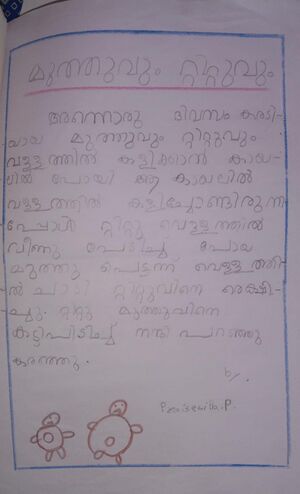 മുത്തുവും റ്റിറ്റുവും
അന്നൊരു ദിവസം കരടി-
യായ മുത്തുവും റ്റിറ്റുവും
വള്ളത്തിൽ കളിക്കാൻ കായ-
ലിൽ പോയി ആ കായലിൽ
വള്ളത്തിൽ കളിച്ചോണ്ടിരുന്ന-
പ്പോൾ റ്റിറ്റു വെള്ളത്തിൽ
വീണു പേടിച്ച് പോയ
മുത്തു പെട്ടന്ന് വെള്ളത്തി-
ൽ ചാടി റ്റിറ്റുവിനെ രെക്ഷി-
ച്ചു. റ്റിറ്റു മുത്തുവിനെ
കെട്ടിപിടിച്ച് നന്ദി പറഞ്ഞു
കരഞ്ഞു.
by,